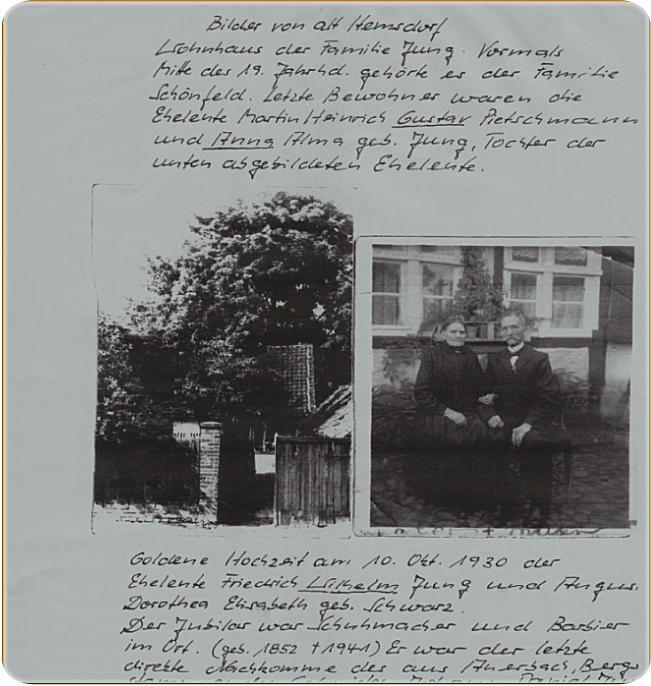 Bilder von alt Hemsdorf
Wohnhaus der Familie Jung. Vormals
Mitte des 19. Jahrhd. gehörte es der Familie
Schönfeld. Letzte Bewohner waren die
Eheleute Martin Heinrich Gustav Pietschmann
und Anna Alma geb. Jung, Tochter der
unten abgebildeten Eheleute.
Goldene Hochzeit am 10. Okt. 1930 der
Eheleute Friedrich Wilhelm Jung und Augus.
Dorothea Elisabeth geb. Schwarz.
Der Jubilar war Schuhmacher und Barbier
im Ort. (geb. 1852 †1941) Er war der letzte
direkte Nachkomme des aus Auerbach, Bergs